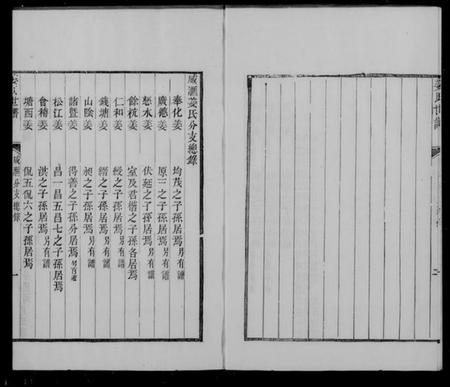 姜氏世譜
咸淛姜氏分支總錄
奉化姜 均茂之子孫居焉另有譜
廣德姜 原三之子孫居焉另有譜
慈水姜 伏延之子孫居焉另有譜
餘杭姜 室及君衛之子孫各居焉
仁和姜 綬之子孫居焉另有譜
錢塘姜 縉之子孫居焉另有譜
山陰姜 之子孫居焉另有譜
諸暨姜 得善之子孫分居焉
松江姜 昌一昌五昌七之子孫居焉
會稽姜 之子孫居焉另有譜
塘西姜 侃五侃六之子孫居焉
姜氏世譜 分支總錄 一